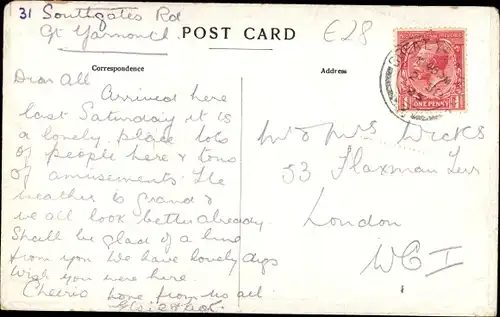 31 Southgates Rd
Gt Yarmouth
POST CARD
E28
Correspondence
Address
ONE PENNY
Dear All
Arrived here
last Saturday it is
a lovely place lots
of people here & tons
of amusements. The
weather is grand &
we all look better already
Shall be glad of a line
from you We have lovely digs
Wish you were here.
Cheerio Love from us all
Elsie & Jack
Mr & Mrs Dicks
53 Flaxman Terr
London
WC1